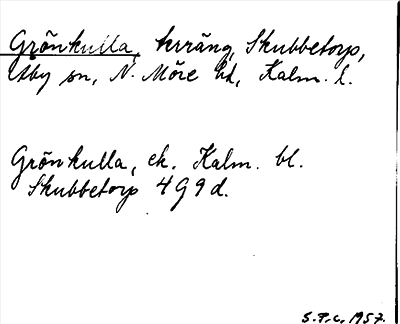 Grönkulla, terräng, Skubbetorp,
Åby sn, N. Möre hd, Kalm. l.
Grönkulla, ek. Kalm. bl.
Skubbetorp 4G9d.
S.P.C. 1957.